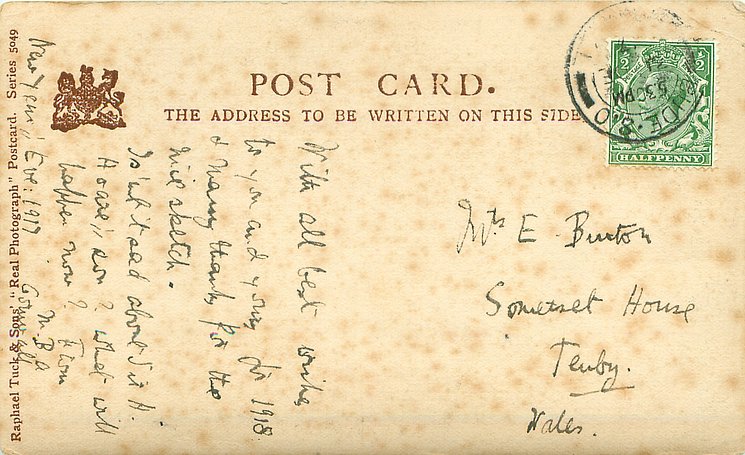 POST CARD.
THE ADDRESS TO BE WRITTEN ON THIS SIDE
Raphael Tuck & Sons' "Real Photograph" Postcard. Series 5049
½
HALFPENNY
5.30 PM
New Year's Eve: 1917
With all best wishes
to you and yours for 1918
& many thanks for the
nice sketch.
Isn't it sad about Sir A.
son? what will
happen now? From
M. B.
Mrs E Burton
Somerset House
Tenby.
Wales.